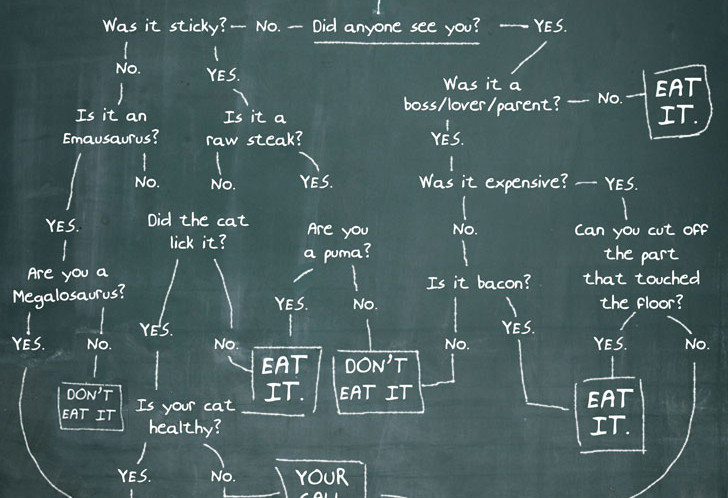 Was it sticky? No. Did anyone see you? YES.
No.
YES.
Was it a
boss/lover/parent?
No.
EAT
IT.
Is it an
Emausaurus?
Is it a
raw steak?
YES.
No.
No.
YES.
Was it expensive?
YES.
YES.
Did the cat
lick it?
Are you
a puma?
No.
Can you cut off
the part
that touched
the floor?
Are you a
Megalosaurus?
Is it bacon?
YES.
No.
YES.
No.
YES.
No.
YES.
No.
No.
YES.
YES.
No.
DON'T
EAT IT
EAT
IT.
DON'T
EAT IT
EAT
IT.
Is your cat
healthy?
YES.
No.
YOUR
CALL